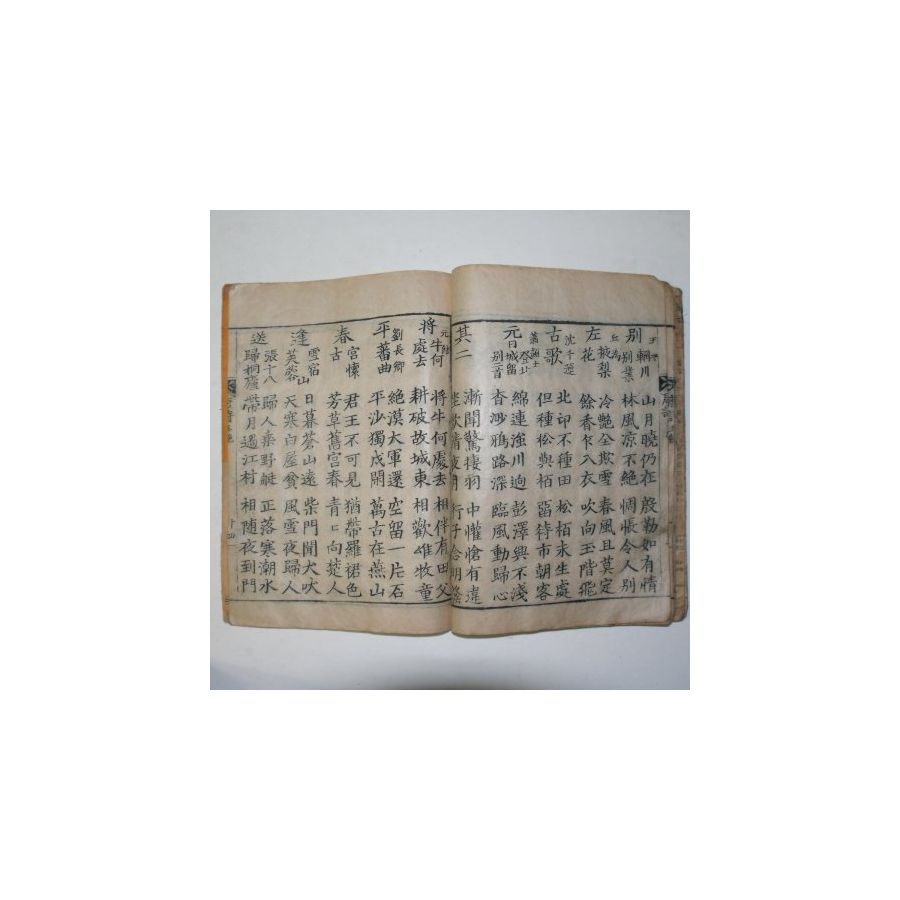 別輞川別業
山月曉仍在
林風凉不絶
殷勤如有情
惆悵令人別
左掖梨花
丘爲
冷艶全欺雪
餘香乍入衣
春風且莫定
吹向玉階飛
古歌
沈千運
北邙不種田
但種松與栢
松栢未生處
留待市朝客
元日城留別二首
蕭穎士
登北
綿連強川逈
杳渺鴉路深
彭澤興不淺
臨風動歸心
其二
漸聞驚棲羽
坐歎清夜月
中懽愴有違
行子念明發
將牛何處去
元結
將牛何處去
耕破故城東
相伴有田父
相歡唯牧童
平蕃曲
劉長卿
絶漠大軍還
平沙獨戍閒
空留一片石
萬古在燕山
春宮懷古
君王不可見
芳草舊宮春
猶帶羅裙色
青〻向楚人
逢雪宿芙蓉山
日暮蒼山遠
天寒白屋貧
柴門聞犬吠
風雪夜歸人
送張十八歸桐廬
歸人乘野艇
帶月過江村
正落寒潮水
相隨夜到門
十四